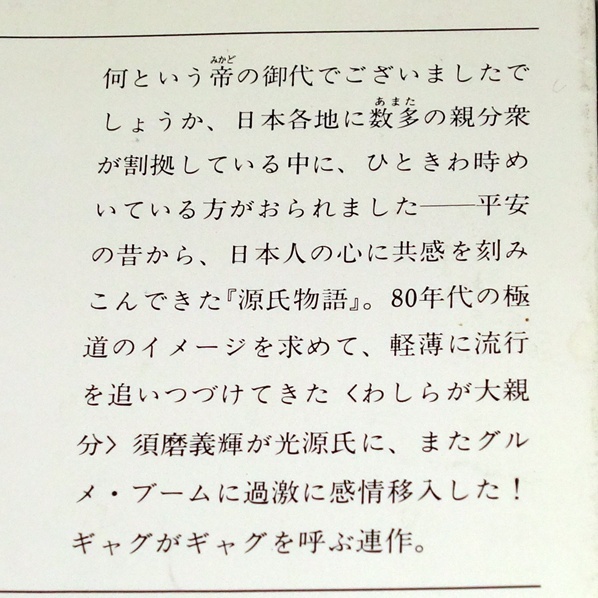 何という帝の御代でございましたで
しょうか、日本各地に数多の親分衆
が割拠している中に、ひときわ時め
いている方がおられました――平安
の昔から、日本人の心に共感を刻み
こんできた『源氏物語』。80年代の極
道のイメージを求めて、軽薄に流行
を追いつづけてきた〈わしらが大親
分〉須磨義輝が光源氏に、またグル
メ・ブームに過激に感情移入した！
ギャグがギャグを呼ぶ連作。